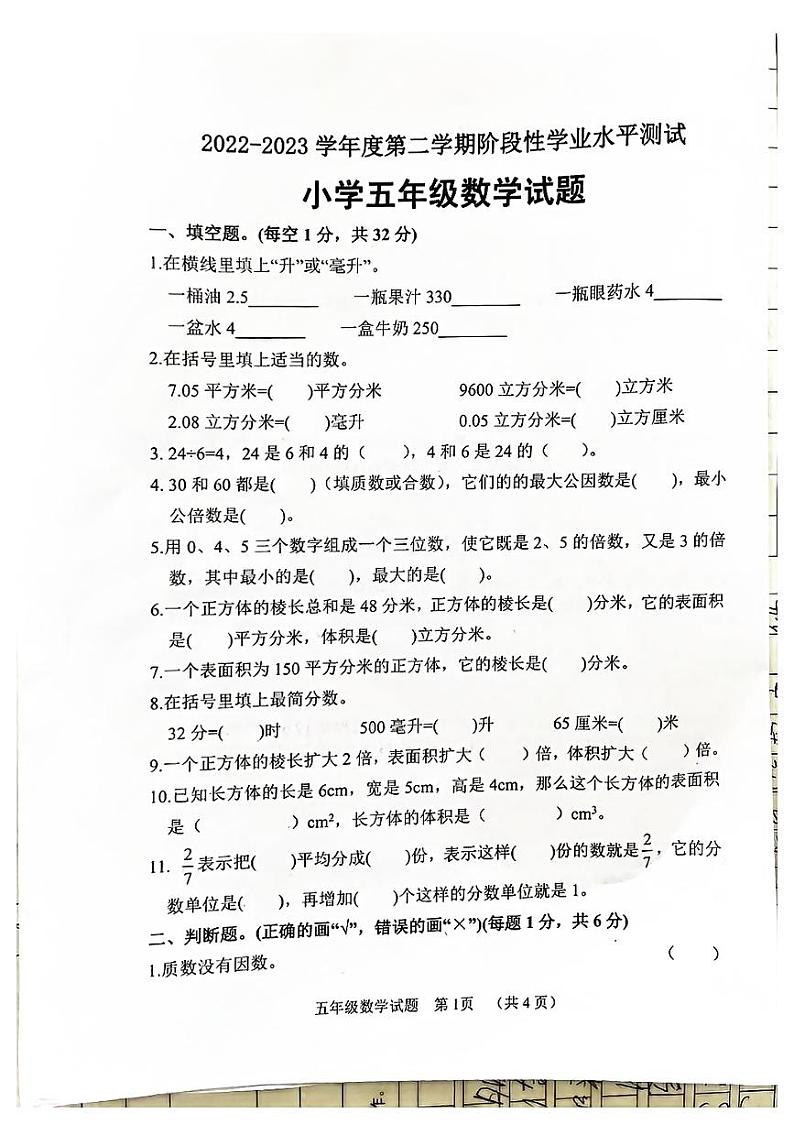 2022-2023 学年度第二学期阶段性学业水平测试
小学五年级数学试题
一、填空题。(每空 1 分，共 32 分)
1.在横线里填上“升”或“毫升”。
一桶油 2.5________ 一瓶果汁 330________ 一瓶眼药水 4________
一盆水 4________ 一盒牛奶 250________
2.在括号里填上适当的数。
7.05 平方米=( )平方分米 9600 立方分米=( )立方米
2.08 立方分米=( )毫升 0.05 立方分米=( )立方厘米
3. 24÷6=4，24 是 6 和 4 的（ ），4 和 6 是 24 的（ ）。
4. 30 和 60 都是( )（填质数或合数），它们的的最大公因数是( )，最小
公倍数是( )。
5.用 0、4、5 三个数字组成一个三位数，使它既是 2、5 的倍数，又是 3 的倍
数，其中最小的是( )，最大的是( )。
6.一个正方体的棱长总和是 48 分米，正方体的棱长是( )分米，它的表面积
是( )平方分米，体积是( )立方分米。
7.一个表面积为 150 平方分米的正方体，它的棱长是( )分米。
8.在括号里填上最简分数。
32 分=( )时 500 毫升=( )升 65 厘米=( )米
9.一个正方体的棱长扩大 2 倍，表面积扩大（ ）倍，体积扩大（ ）倍。
10.已知长方体的长是 6cm，宽是 5cm，高是 4cm，那么这个长方体的表面积
是（ ）cm²，长方体的体积是（ ）cm³。
11. 2/7 表示把( )平均分成( )份，表示这样( )份的数就是 2/7，它的分
数单位是( )，再增加( )个这样的分数单位就是 1。
二、判断题。(正确的画“√”，错误的画“×”)(每题 1 分，共 6 分)
1.质数没有因数。 （ ）
五年级数学试题 第 1页 （共 4 页）